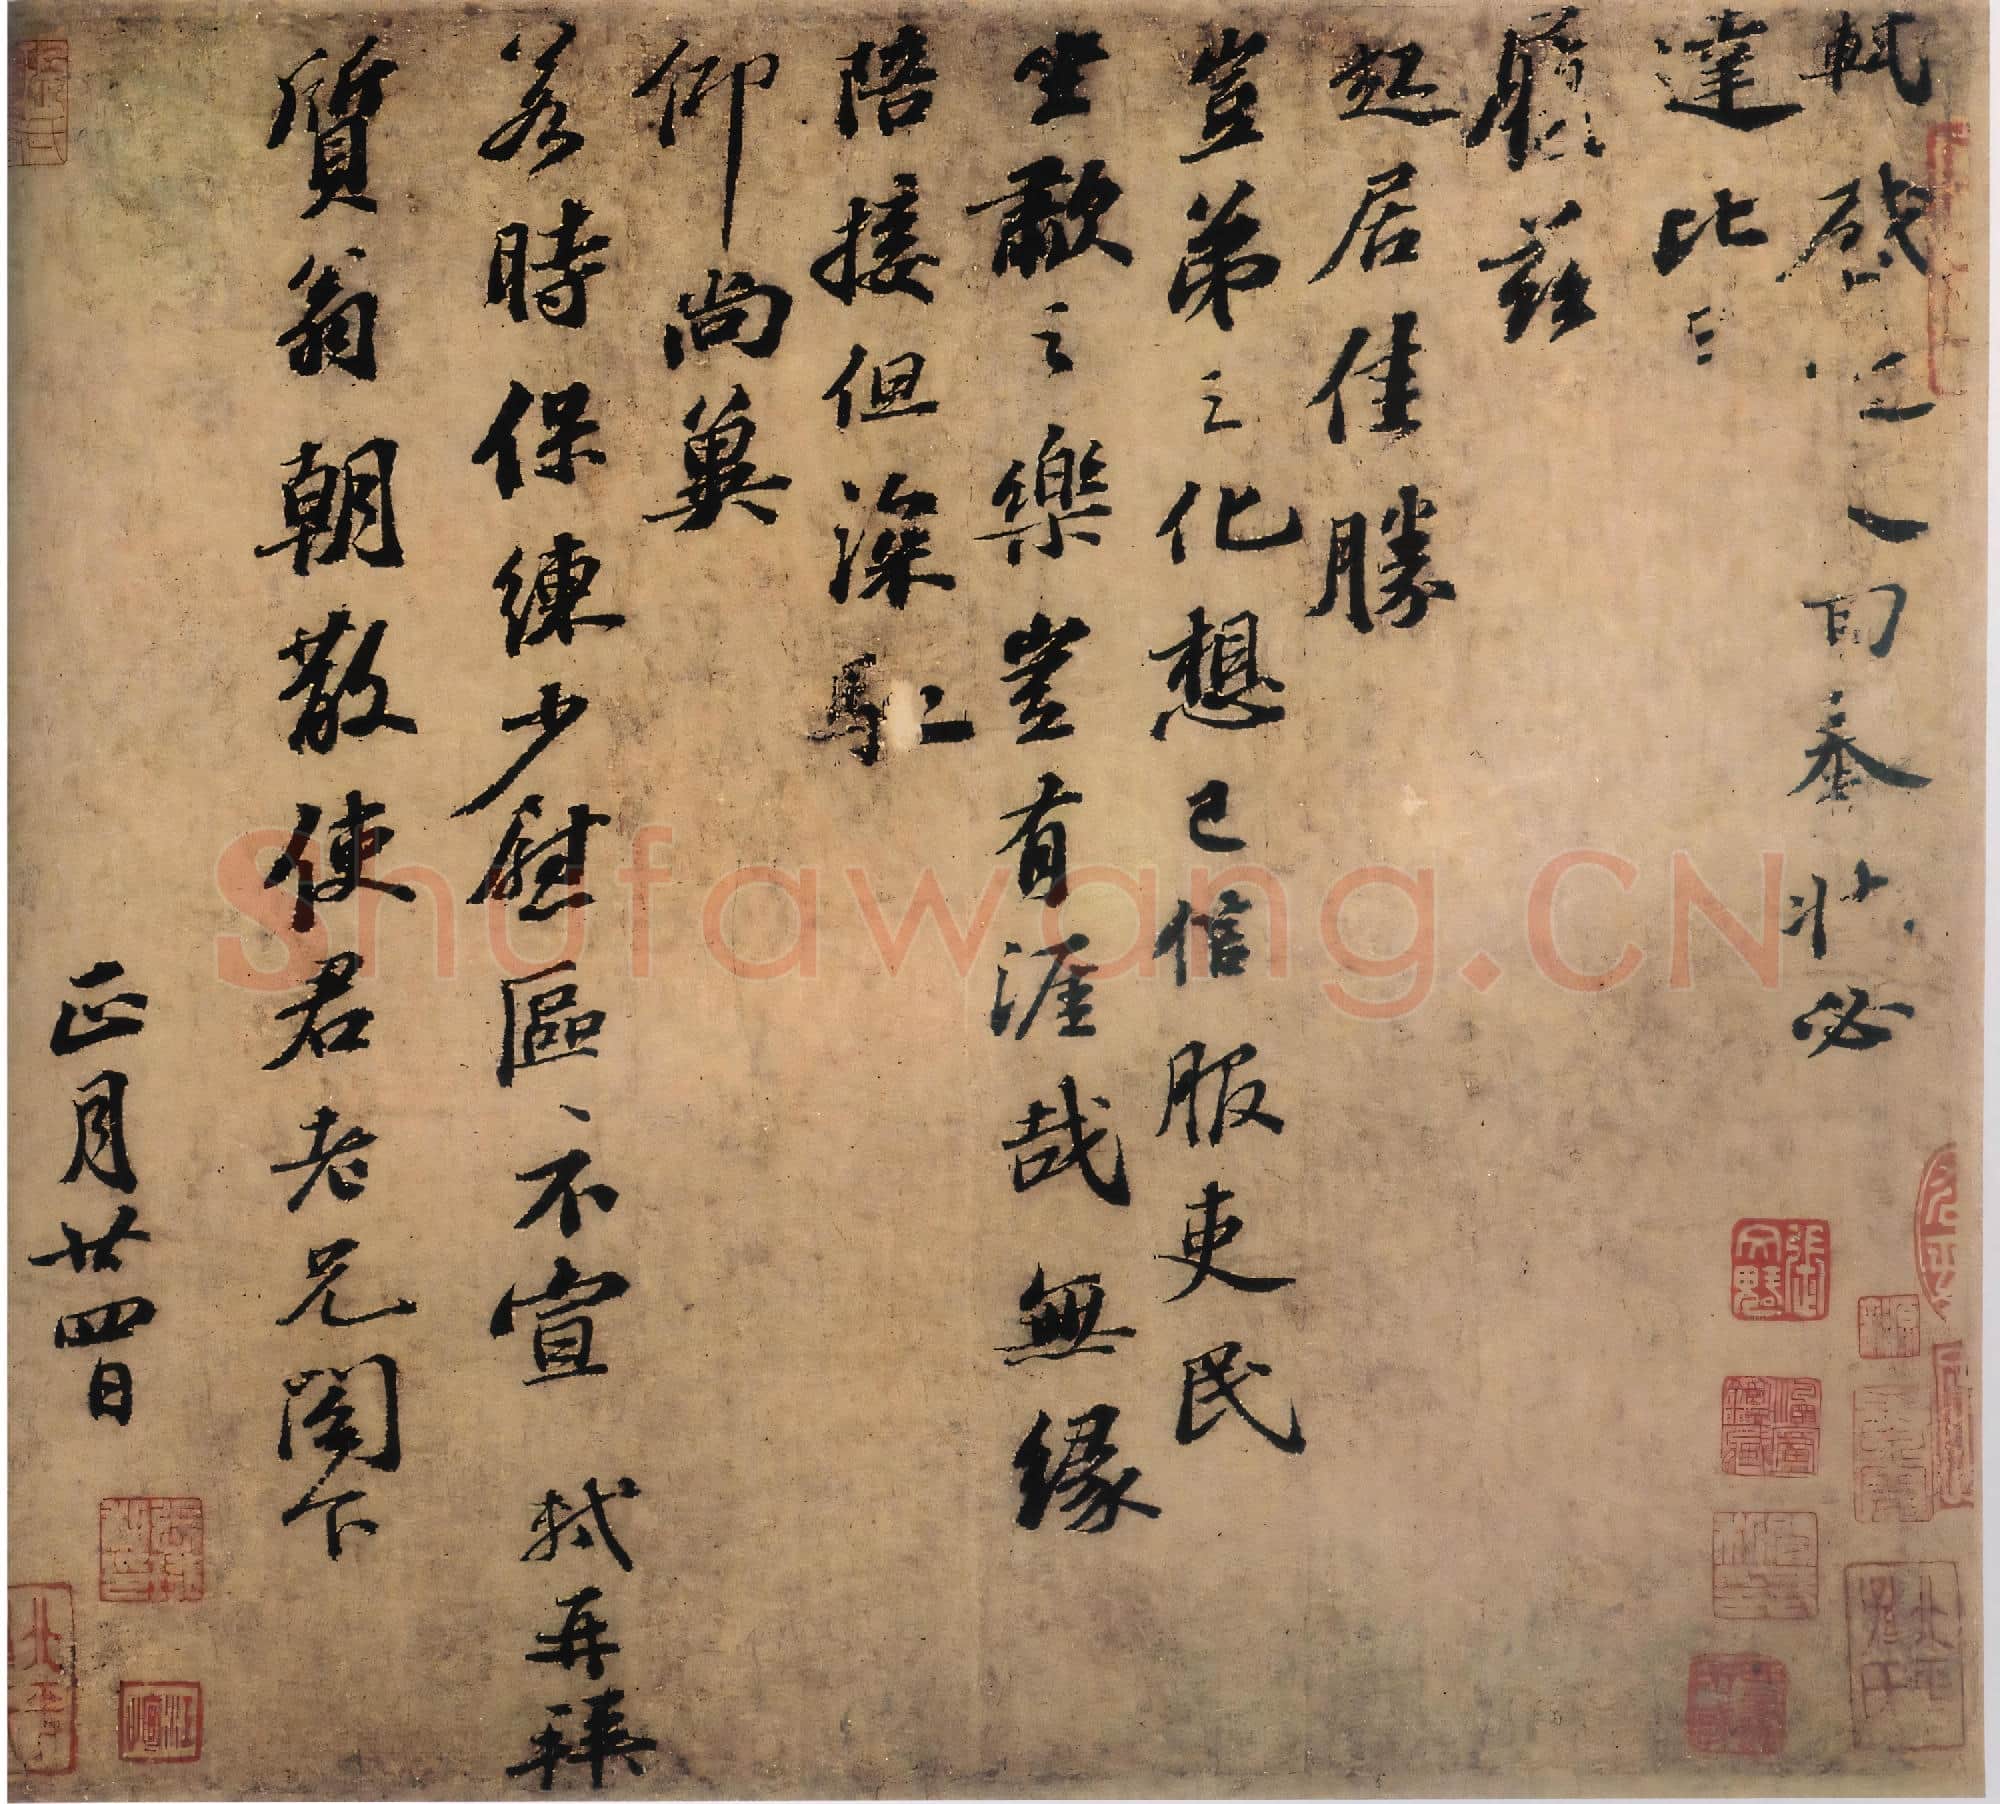 軾啟奉狀必
達比
履茲
起居佳勝
豈弟之化想已信服吏民
坐歗之樂豈有涯哉無緣
陪接但深馳
仰尚冀
若時保練少慰區、不宣 軾再拜
質翁朝散使君老兄閣下
正月廿四日
張文魁
Shufawang.CN